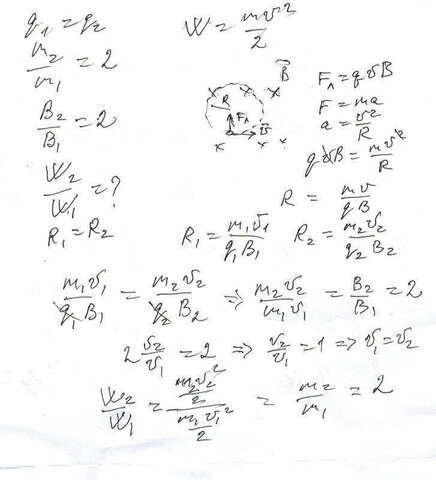 q₁ = q₂
W = mv²/2
m₂/m₁ = 2
B₂/B₁ = 2
B⃗
R
Fл
v⃗
Fл = qvB
F = ma
a = v²/R
qvB = mv²/R
W₂/W₁ = ?
R = mv/qB
R₁ = R₂
R₁ = m₁v₁/q₁B₁ R₂ = m₂v₂/q₂B₂
m₁v₁/q₁B₁ = m₂v₂/q₂B₂ => m₂v₂/m₁v₁ = B₂/B₁ = 2
2 v₂/v₁ = 2 => v₂/v₁ = 1 => v₁ = v₂
W₂/W₁ = (m₂v₂²/2)/(m₁v₁²/2) = m₂/m₁ = 2